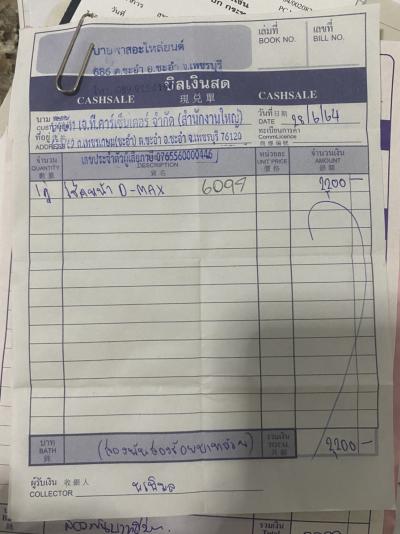 685 ต.ชะอำ อ.ชะอำ จ.เพชรบุรี
เล่มที่ เลขที่
BOOK NO. BILL NO.
บิลเงินสด
CASHSALE 現兌單 CASHSALE
นาม
เจ.ที.คาร์เซ็นเตอร์ จำกัด (สำนักงานใหญ่)
วันที่ 日期
DATE 28/6/64
ที่อยู่
ถ.เพชรเกษม(ชะอำ) ต.ชะอำ อ.ชะอำ จ.เพชรบุรี 76120
ทะเบียนการค้า
CommLicence
เลขประจำตัวผู้เสียภาษี 0765560000446
จำนวน หน่วยละ จำนวนเงิน
QUANTITY DESCRIPTION UNIT PRICE AMOUNT
數量 貨名 價格 銀額
1 คู่ โช้คหน้า D-MAX 6094 2200 -
บาท (สองพันสองร้อยบาทถ้วน) รวมเงิน 2200 -
BATH TOTAL
ผู้รับเงิน 收銀人
COLLECTOR
รวมเงิน
Total